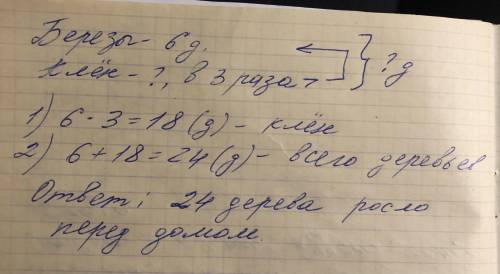 Березы - 6 д.
Клён - ?, в 3 раза > } ? д
1) 6 · 3 = 18 (д) - клён
2) 6 + 18 = 24 (д) - всего деревьев
Ответ: 24 дерева росло
перед домом.